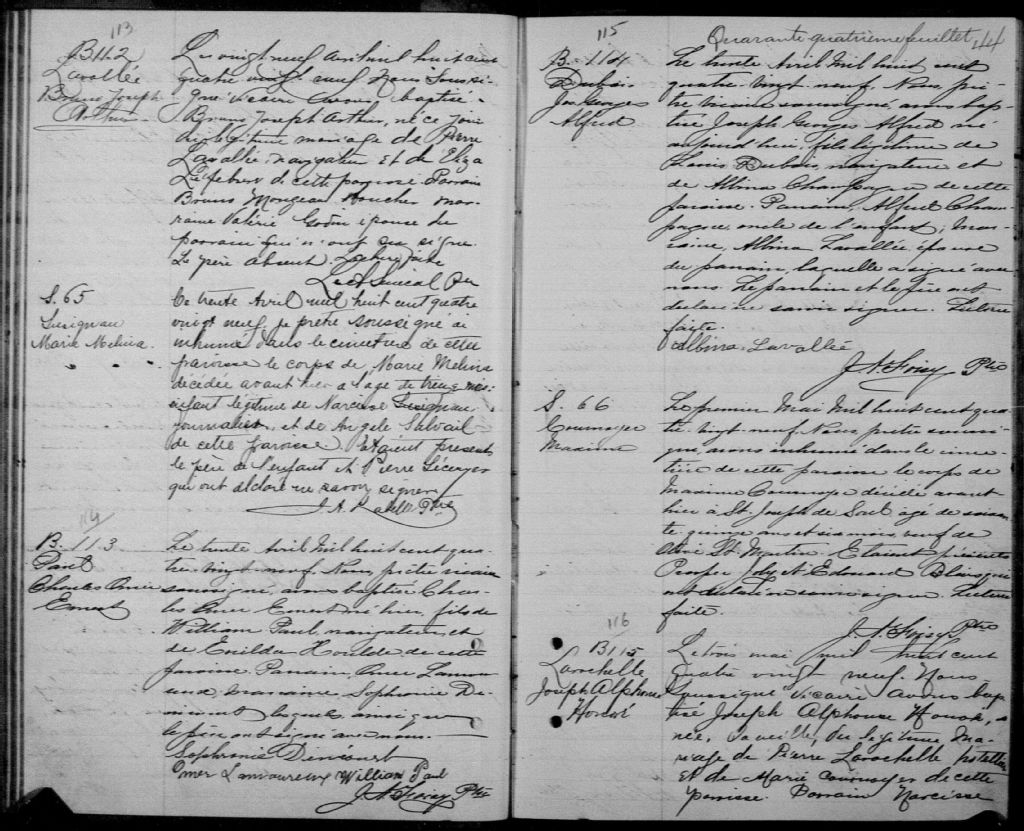 113
B 112
Lavallée
Bruno Joseph
Arthur
Le vingt neuf Avril mil huit cent
quatre vingt neuf Nous soussi-
gné vicaire avons baptisé
Bruno Joseph Arthur, né ce jour
du légitime mariage de Pierre
Lavallée navigateur Et de Eliza
Lefebvre de cette paroisse Parrain
Bruno Mongeau Boucher mar-
raine Valérie Godin épouse du
parrain qui n'ont su signer.
Le père absent. Lecture faite
Ptre
S. 65
Lusignan
Marie Melina.
Ce trente Avril mil huit cent quatre
vingt neuf, je prêtre soussigné ai
inhumé dans le cimetière de cette
paroisse le corps de Marie Melina
décédée avant hier a l'age de treize mois
enfant légitime de Narcisse Lusignan
journalier, et de Angele Salvail
de cette paroisse. Etaient presents
le père de l'enfant et Pierre
qui ont déclaré ne savoir signer
J. A. Ptre
114
B. 113
Paul
Charles Omer
Ernest
Le trente Avril Mil huit cent qua-
tre vingt neuf Nous prêtre vicaire
soussigné, avons baptisé Char-
les Omer Ernest né hier, fils de
William Paul, navigateur, et
de Enilda Houlde de cette
paroisse Parrain, Omer Lamou-
reux, marraine, Sophronie De-
laquelle ainsi que
le père ont signé avec nous.
Sophronie
Omer Lamoureux William Paul
J. A. Foisy Ptre
115
Quarante quatrieme feuillet 44
B. 114
Dubois
Jos Georges
Alfred
Le trente Avril Mil huit cent
quatre vingt neuf, Nous prê-
tre vicaire soussigné, avons bap-
tisé Joseph Georges Alfred né
aujourd'hui, fils légitime de
Louis Dubois, navigateur et
de Albina Champagne de cette
paroisse. Parrain, Alfred Cham-
pagne oncle de l'enfant; mar-
raine, Albina Lavallée, épouse
du parrain, laquelle a signé avec
nous. Le parrain et le père ont
déclaré ne savoir signer. Lecture
faite.
Albina Lavallée
J. A. Foisy Ptre
S. 66
Cournoyer
Maxime
Le premier Mai Mil huit cent qua-
tre vingt neuf. Nous prêtre soussi-
gné, avons inhumé dans le cime-
tière de cette paroisse le corps de
Maxime Cournoyer décédé avant
hier à St Joseph de Sorel agé de soixan-
te quinze ans et six mois, veuf de
St Martin. Etaient présents
Prosper Joly et Edouard
ont déclaré ne savoir signer. Lecture
faite.
J. A. Foisy Ptre
116
B 115
Larochelle
Joseph Alphonse
Honoré
Le trois mai mil huit cent
quatre vingt neuf. Nous
soussigné vicaire avons bap-
tisé Joseph Alphonse Honoré,
né, la veille, du légitime ma-
riage de Pierre Larochelle
Et de Marie Cournoyer de cette
paroisse. Parrain Narcisse